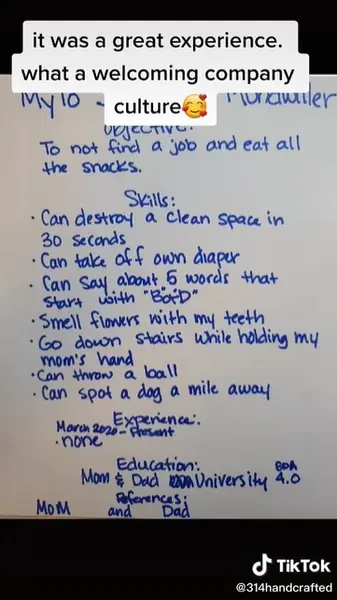 it was a great experience.
what a welcoming company
culture🥰
Mylo
Objective:
To not find a job and eat all
the snacks.
Skills:
· Can destroy a clean space in
30 seconds
· Can take off own diaper
· Can say about 5 words that
start with "B or D"
· Smell flowers with my teeth
· Go down stairs while holding my
mom's hand
· Can throw a ball
· Can spot a dog a mile away
Experience:
March 2020 - Present
· none
Education:
Mom & Dad University 4.0
References:
Mom and Dad
TikTok
@314handcrafted